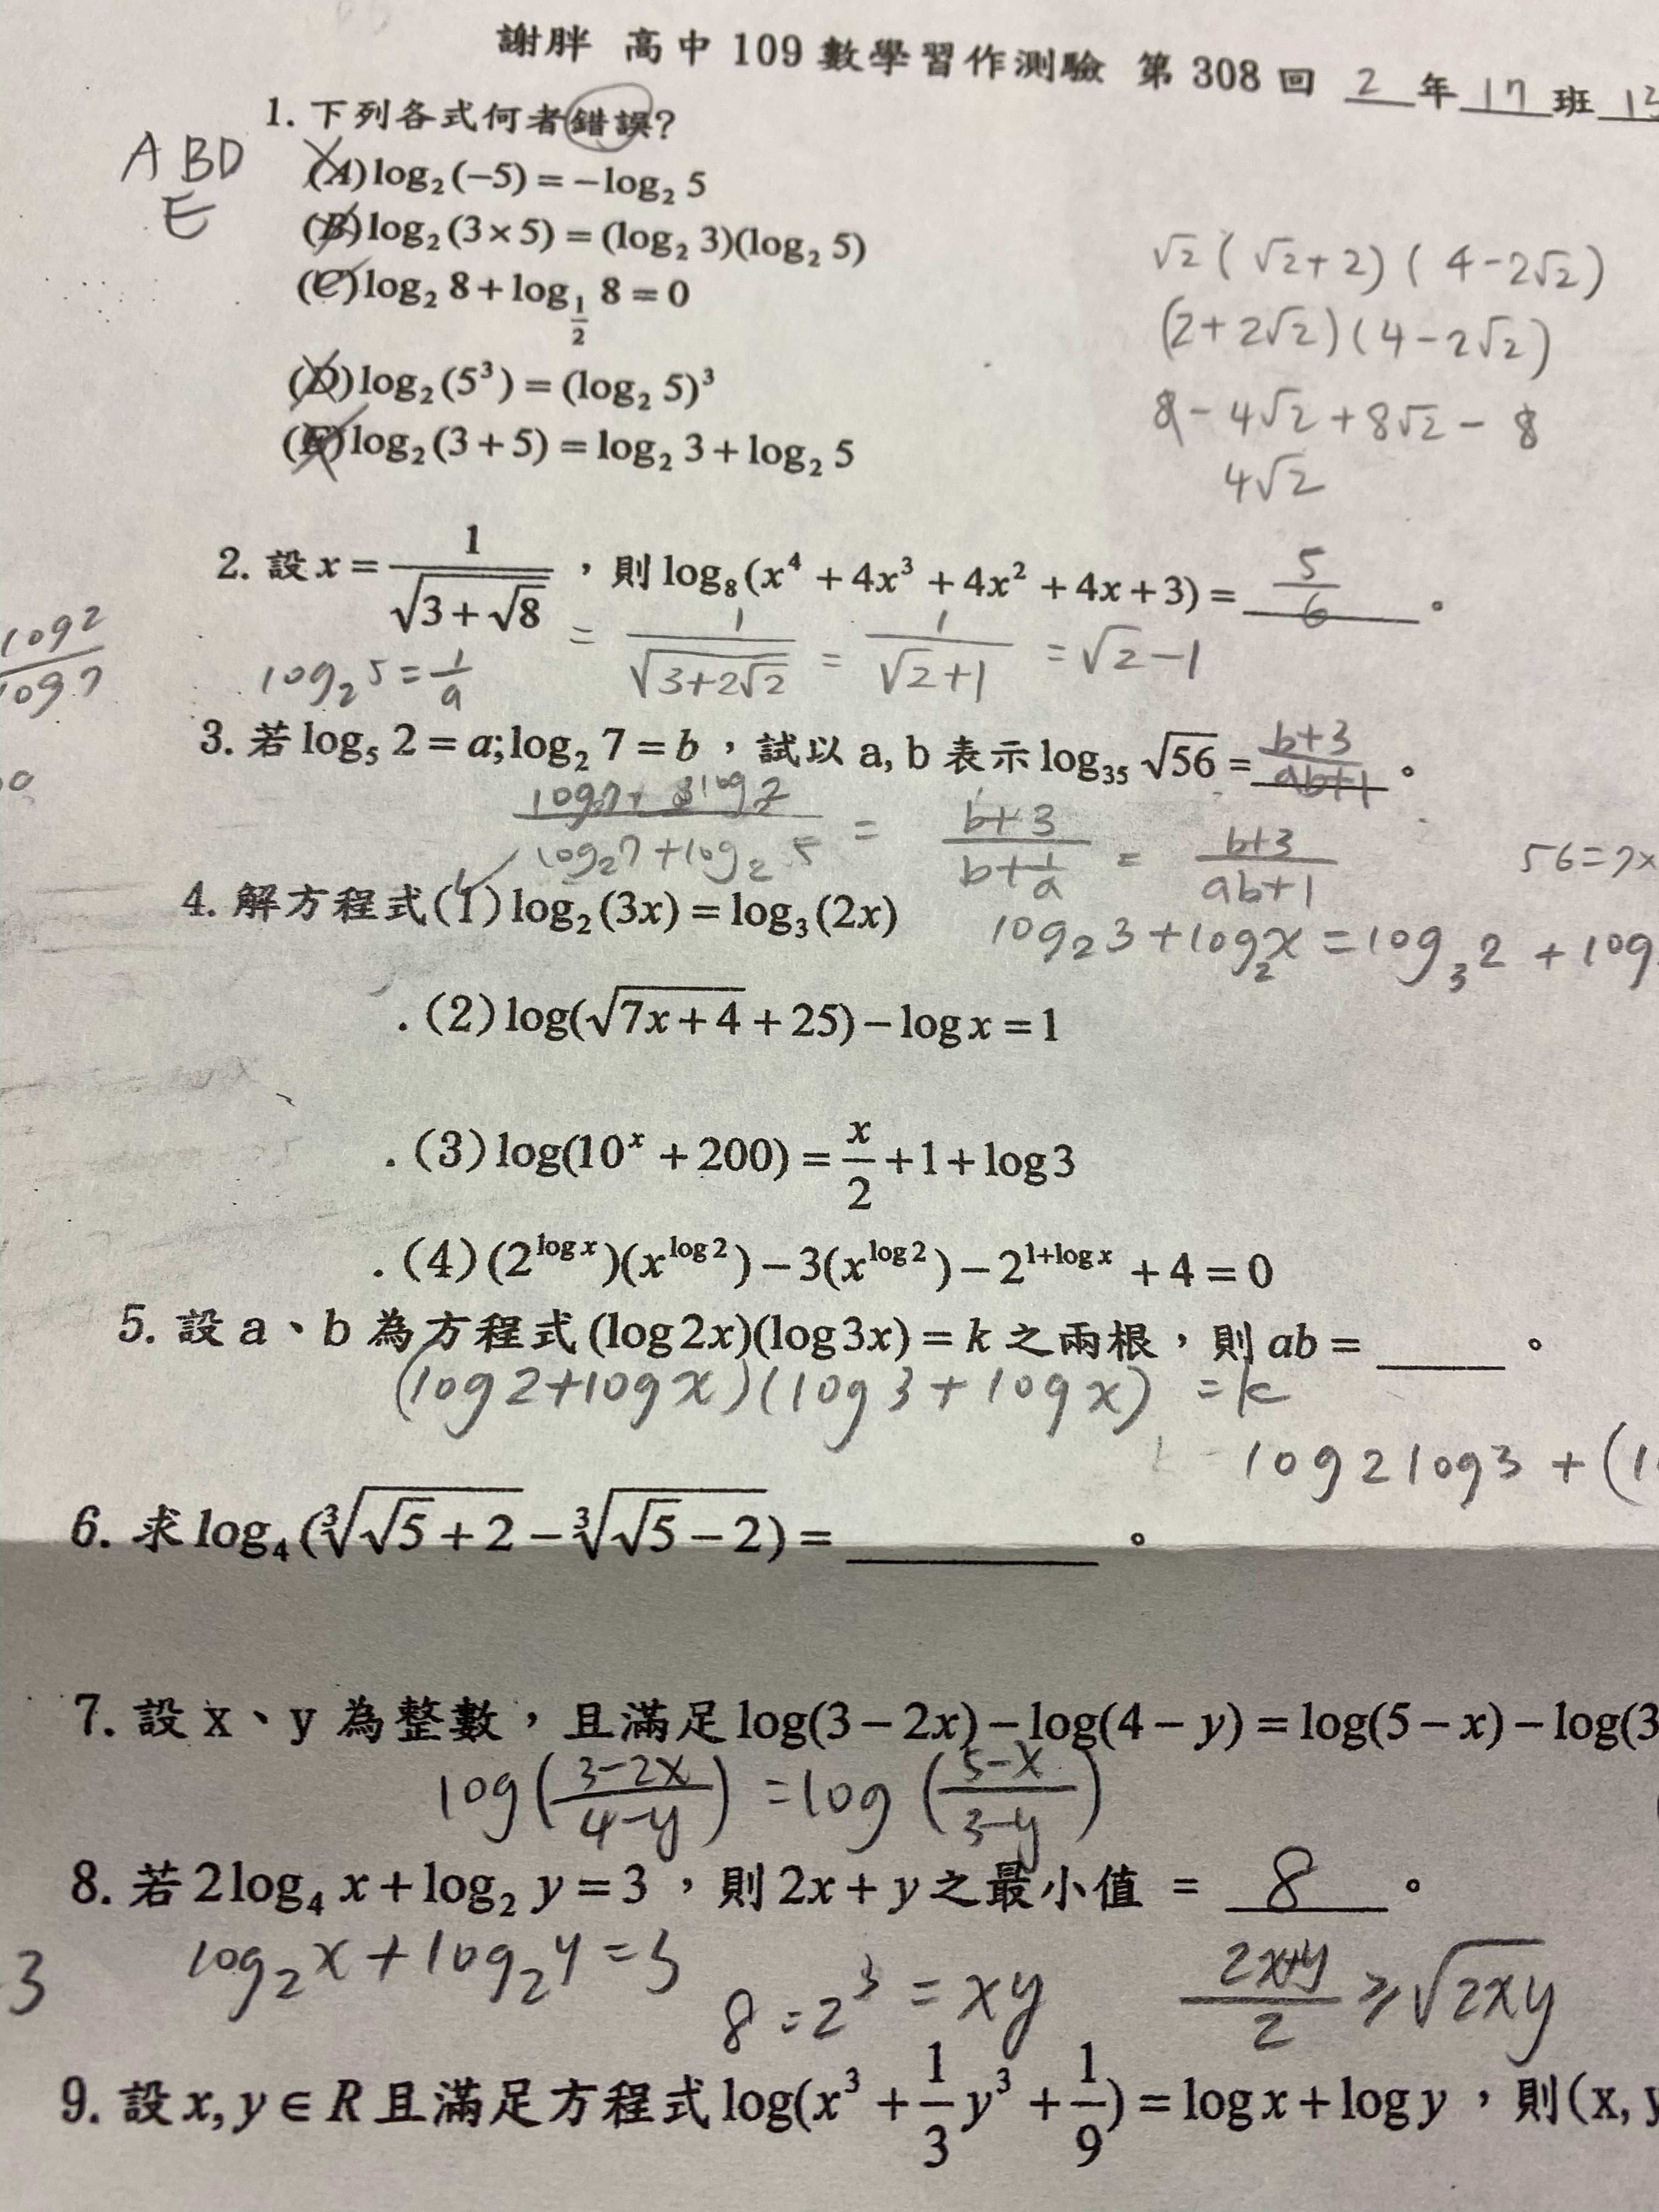 謝胖 高中 109 數學習作測驗 第 308 回 2 年 17 班 13
1. 下列各式何者錯誤?
ABD
E
(A) log₂(−5) = −log₂ 5
(B) log₂(3×5) = (log₂ 3)(log₂ 5)
(C) log₂ 8 + log_{1/2} 8 = 0
(D) log₂(5³) = (log₂ 5)³
(E) log₂(3+5) = log₂ 3 + log₂ 5
√2 ( √2+2) ( 4-2√2)
(2+2√2)(4-2√2)
8-4√2+8√2-8
4√2
2. 設 x = 1/√(3+√8) ,則 log₈(x⁴ + 4x³ + 4x² + 4x + 3) = 5/6 。
= 1/√(3+2√2) = 1/(√2+1) = √2-1
log2/log7
log₂5 = 1/a
3. 若 log₅ 2 = a; log₂ 7 = b ,試以 a, b 表示 log₃₅ √56 = (b+3)/(ab+1) 。
(log7+3log2)/(log₂7+log₂5) = (b+3)/(b+1/a) = (b+3)/(ab+1)
56=7×
4. 解方程式(1) log₂(3x) = log₃(2x)
log₂3+log₂x = log₃2 + log
.(2) log(√(7x+4) + 25) − log x = 1
.(3) log(10ˣ + 200) = x/2 + 1 + log 3
.(4) (2^{log x})(x^{log 2}) − 3(x^{log 2}) − 2^{1+log x} + 4 = 0
5. 設 a、b 為方程式 (log 2x)(log 3x) = k 之兩根,則 ab = _____ 。
(log2+logx)(log3+logx) = k
log2log3 + (l
6. 求 log₄(∛(√5+2) − ∛(√5−2)) = _____ 。
7. 設 x、y 為整數,且滿足 log(3−2x) − log(4−y) = log(5−x) − log(3
log((3-2x)/(4-y)) = log((5-x)/(3-y))
8. 若 2log₄ x + log₂ y = 3 ,則 2x + y 之最小值 = 8 。
log₂x + log₂y = 3
3
8=2³ = xy
(2x+y)/2 ≥ √2xy
9. 設 x, y ∈ R 且滿足方程式 log(x³ + 1/3 y³ + 1/9) = log x + log y ,則 (x, y